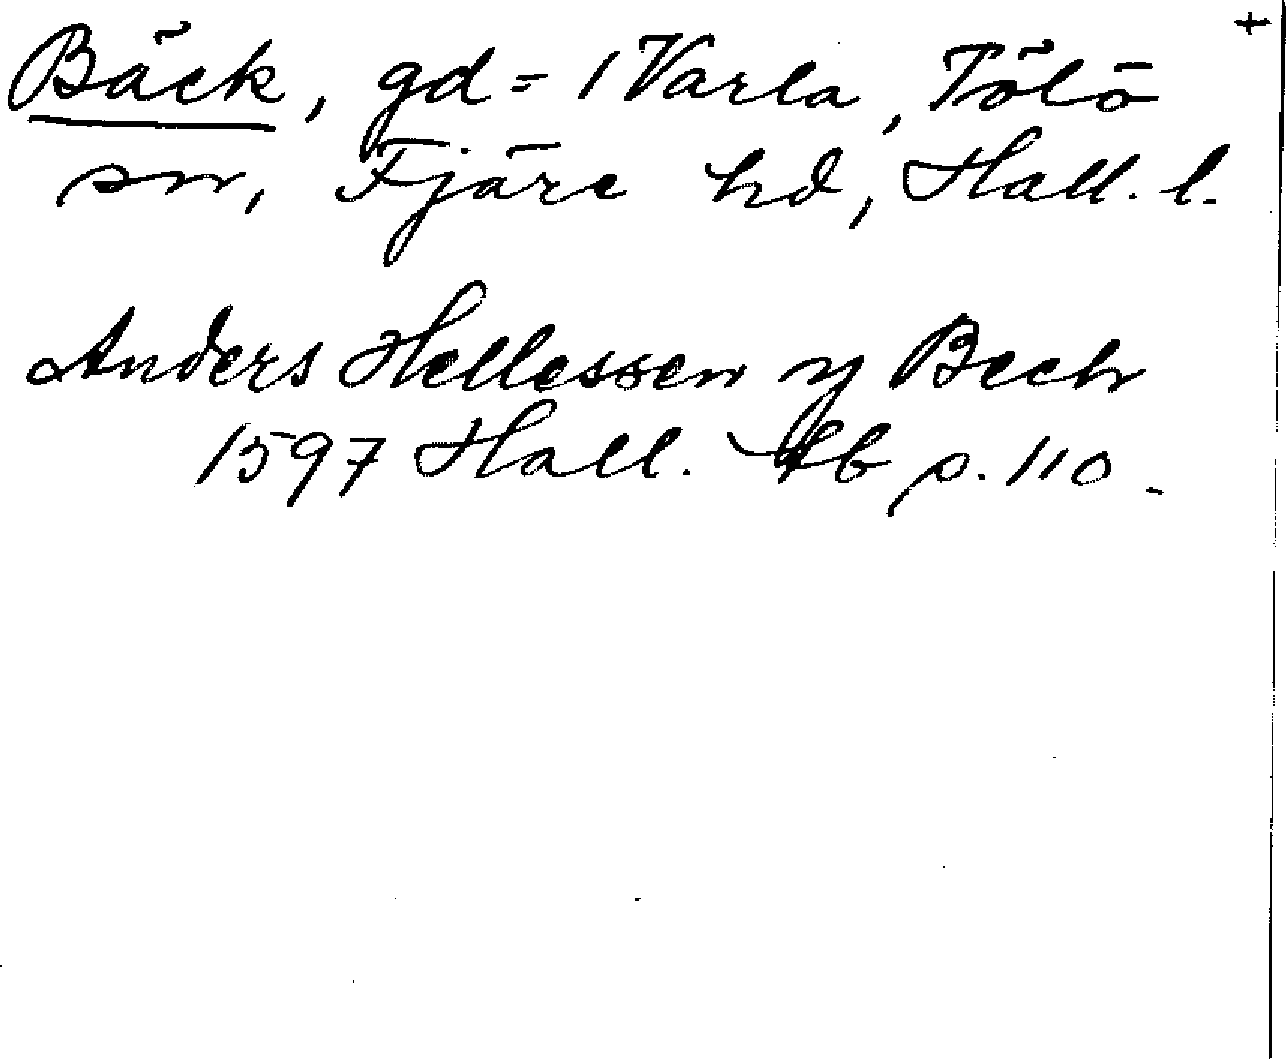 +
Bäck, gd = 1 Varla, Tölö
sn, Fjäre hd, Hall. l.
Anders Hellessen y Bech
1597 Hall. p. 110.